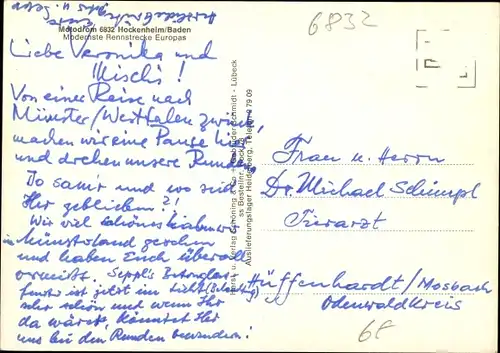 Motodrom 6832 Hockenheim/Baden
Modernste Rennstrecke Europas
6832
Liebe Veronika und
Mischi!
Von einer Reise nach
Münster/Westfalen zurück,
machen wir eine Pause hier
und drehen unsere Runden.
Do samr und wo seid
Ihr geblieben?!
Wir viel schönes haben wir
im Münsterland gesehen
und haben Euch überall
vermißt. Seppl's Betonglas-
fenster ist jetzt im Licht
sehr schön und wenn Ihr
da wärst, könntet Ihr
uns bei den Runden bewundern!
Schöning & Co + Gebrüder Schmidt - Lübeck
Auslieferungslager Heidelberg, Telefon 2 79 09
Frau u. Herrn
Dr. Michael Schimpl
Tierarzt
Hüffenhardt/Mosbach
Odenwaldkreis
68